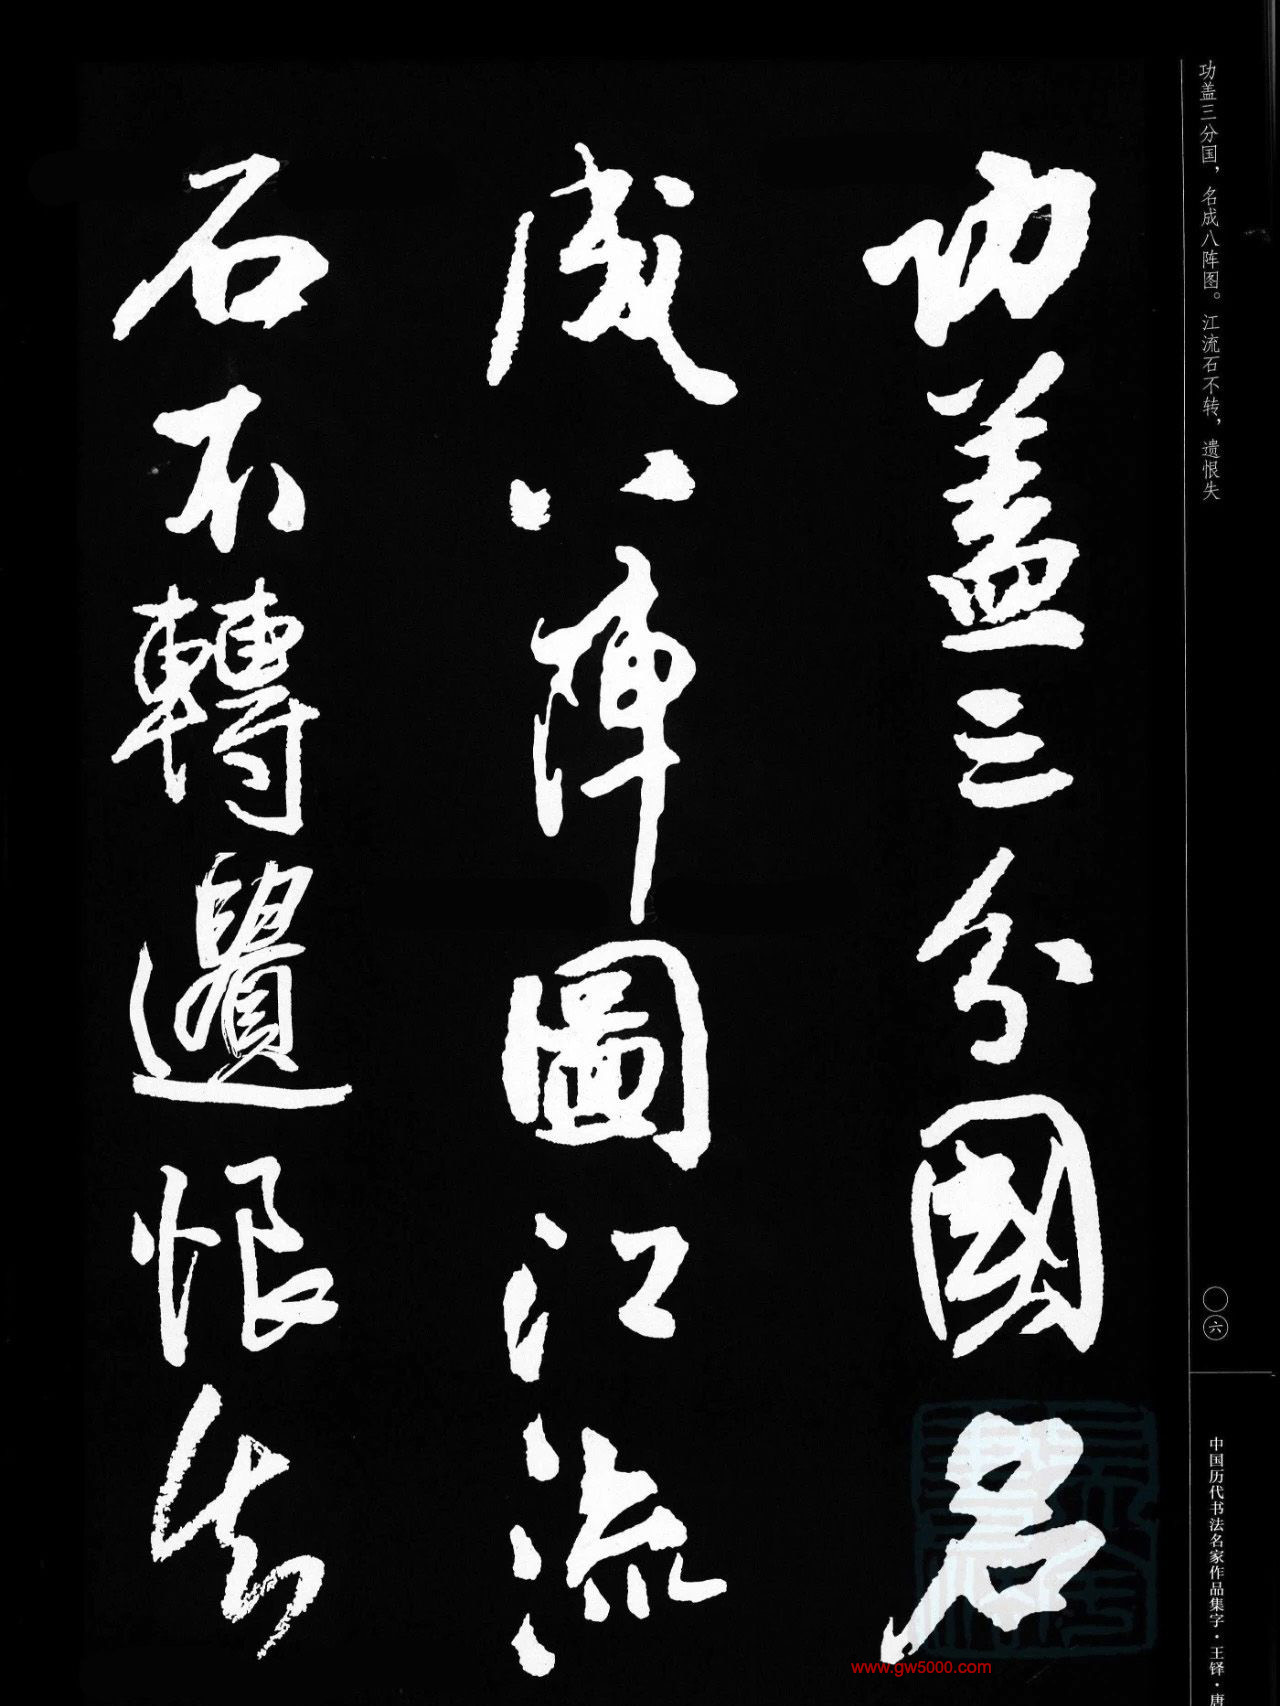 功盖三分国，名成八阵图。江流石不转，遗恨失
功蓋三分國名
成八陣圖江流
石不轉遺恨失
〇六
中国历代书法名家作品集字·王铎·唐
www.gw5000.com